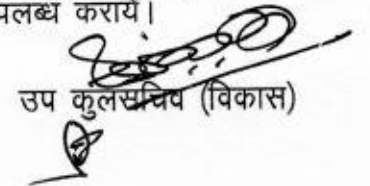 पलब्ध करायें।
उप कुलसचिव (विकास)